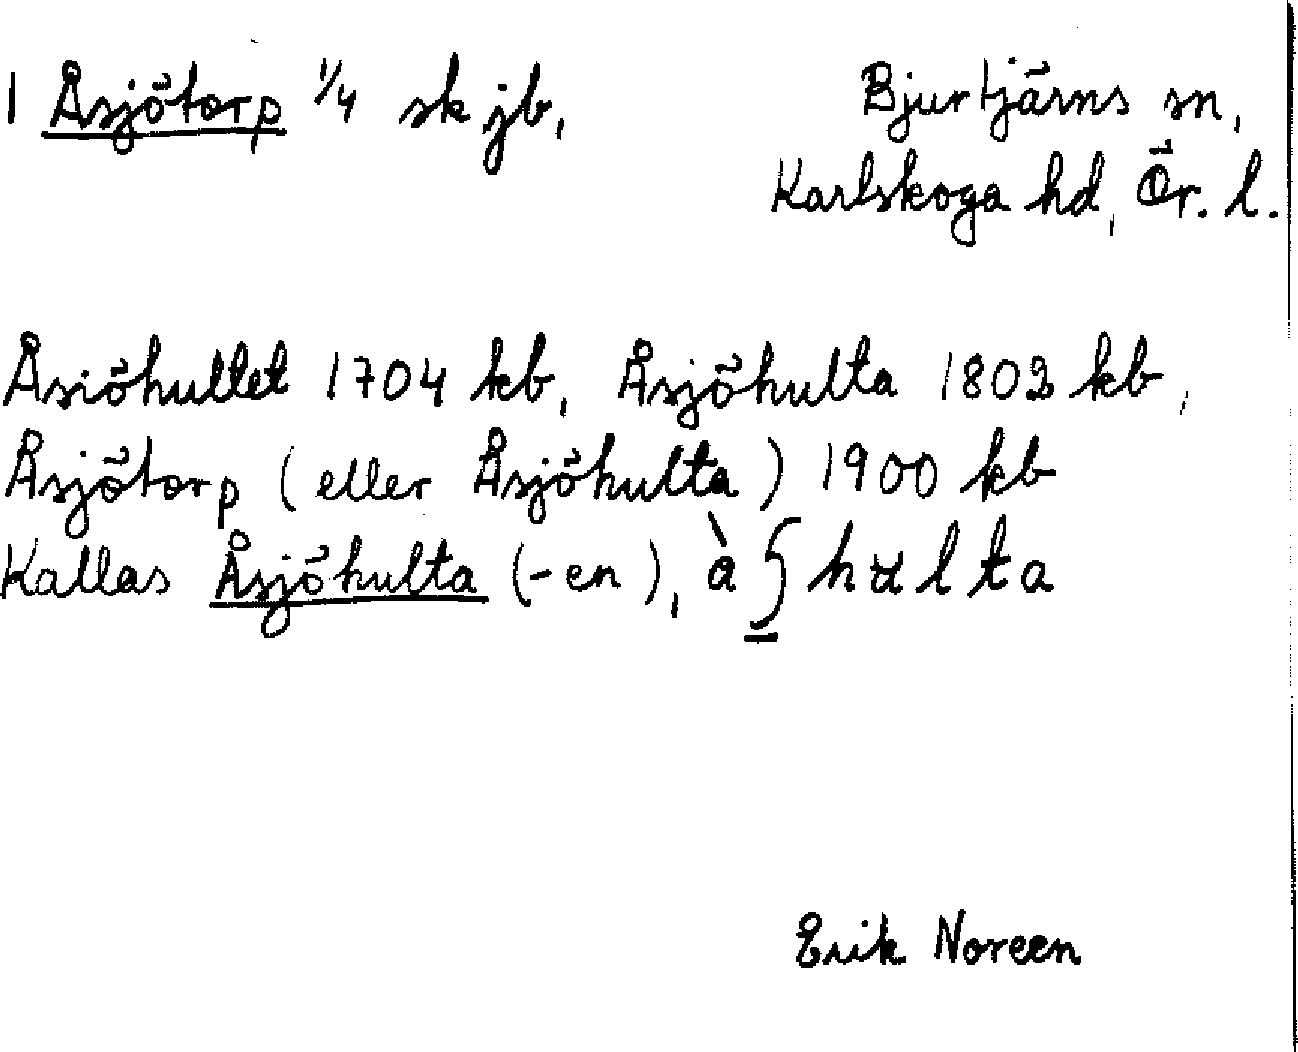 1 Åsjötorp 1/4 sk jb,
Bjurtjärns sn,
Karlskoga hd, Ör. l.
Åsiöhultet 1704 kb, Åsjöhulta 1803 kb,
Åsjötorp (eller Åsjöhulta) 1900 kb
Kallas Åsjöhulta (-en),
Erik Noreen